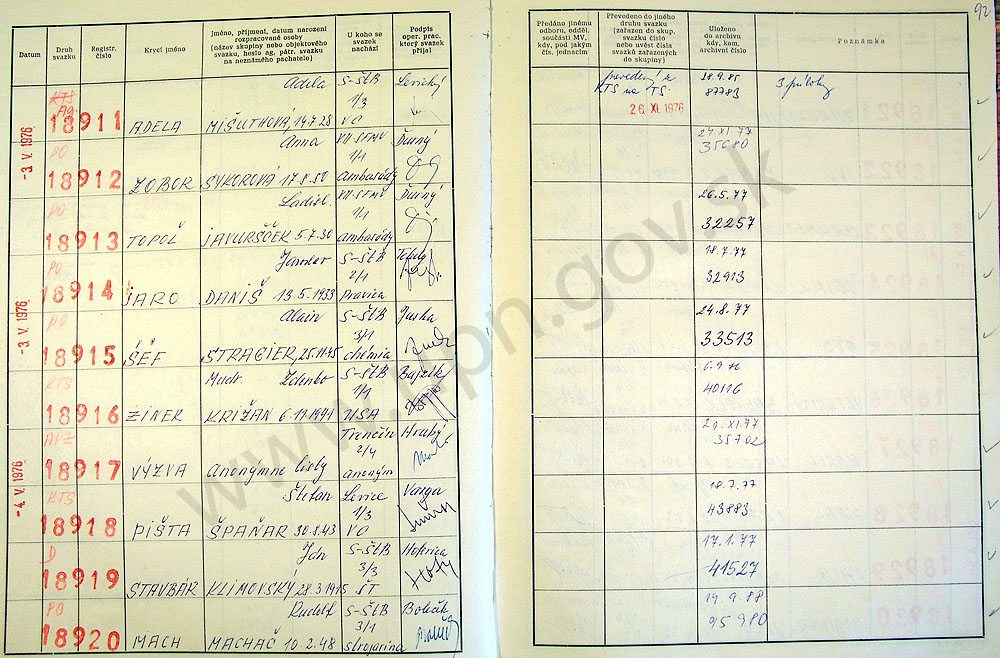 92
Datum
Druh svazku
Registr. číslo
Krycí jméno
Jméno, příjmení, datum narození
rozpracované osoby
(název skupiny nebo objektového
svazku, heslo ag. pátr. svazku
na neznámého pachatele)
U koho se
svazek
nachází
Podpis
oper. prac.
který svazek
přijal
Předáno jinému
odboru, odděl.
součásti MV,
kdy, pod jakým
čís. jednacím
Převedeno do jiného
druhu svazku
(zařazen do skup.
svazku číslo
nebo uvést čísla
svazků zařazených
do skupiny)
Uloženo
do archivu
kdy, kam,
archivní číslo
Poznámka
-3. V. 1976
KTS Adela S-ŠtB Levický
Ag. 1/3
18911 ADELA MIŠUTHOVÁ, 14.7.28 VO
KTS na TS 28.9.85
26 XI. 1976 87783
PO Anna XII-SFMV Ďurný
1/1
18912 ZOBOR SÝKOROVÁ 17.8.50 Ambasády
24 XI. 77
35680
PO Ladisl. XII-SFMV Ďurný
1/1
18913 TOPOĽ JAVURŠČEK 5.7.30 ambasády
26.5.77
32257
-3. V. 1976
PO Jaroslav S-ŠtB
2/1
18914 JARO DANIŠ 13.5.1933 Pravica
18.7.77
32913
PO Alain S-ŠtB
3/1
18915 ŠÉF STRAGIER, 25.11.45 chémia
24.8.77
33513
KTS Mudr. Zdenko S-ŠtB Bajzík
1/1
18916 ŽINEK KRIŽAN 6.11.1941 USA
40116
-4. V. 1976
APZ Trenčín Hrubý
2/4
18917 VÝZVA Anonýmne listy anoným
29. XI. 77
35702
KTS Štefan Levice Varga
1/3
18918 PIŠTA ŠPAŇAR 30.8.43 VO
18.7.77
43883
D Ján S-ŠtB
3/3
18919 STAVBÁR KLIMOVSKÝ 28.3.1915 ŠT
17.1.77
41527
PO Rudolf S-ŠtB
3/1
18920 MACH MACHAČ 10.2.48 strojárina
14.9.88
95980
www.upn.gov.sk